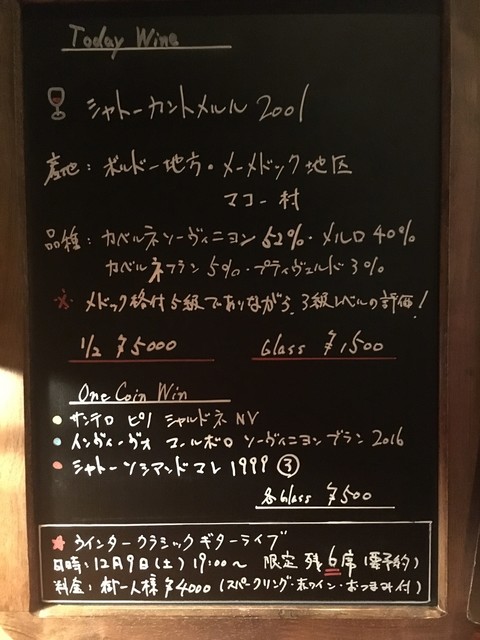 Today Wine
シャトーカントメルル 2001
産地：ボルドー地方・メーメドック地区
マコー村
品種：カベルネソーヴィニヨン 52%・メルロ 40%
カベルネフラン 5%・プティヴェルド 3%
☆ メドック格付5級でありながら、3級レベルの評価！
1/2 ¥5000 Glass ¥1500
One Coin Win
・サンテロ ピノ シャルドネ NV
・インヴィーヴォ マールボロ ソーヴィニヨンブラン 2016
・シャトーソシアンドマレ 1999 ③
各Glass ¥500
★ ウインタークラシックギターライブ
日時：12月9日(土) 19:00〜 限定 残6席(要予約)
料金：御一人様 ¥4000 (スパークリング・赤ワイン・おつまみ付)